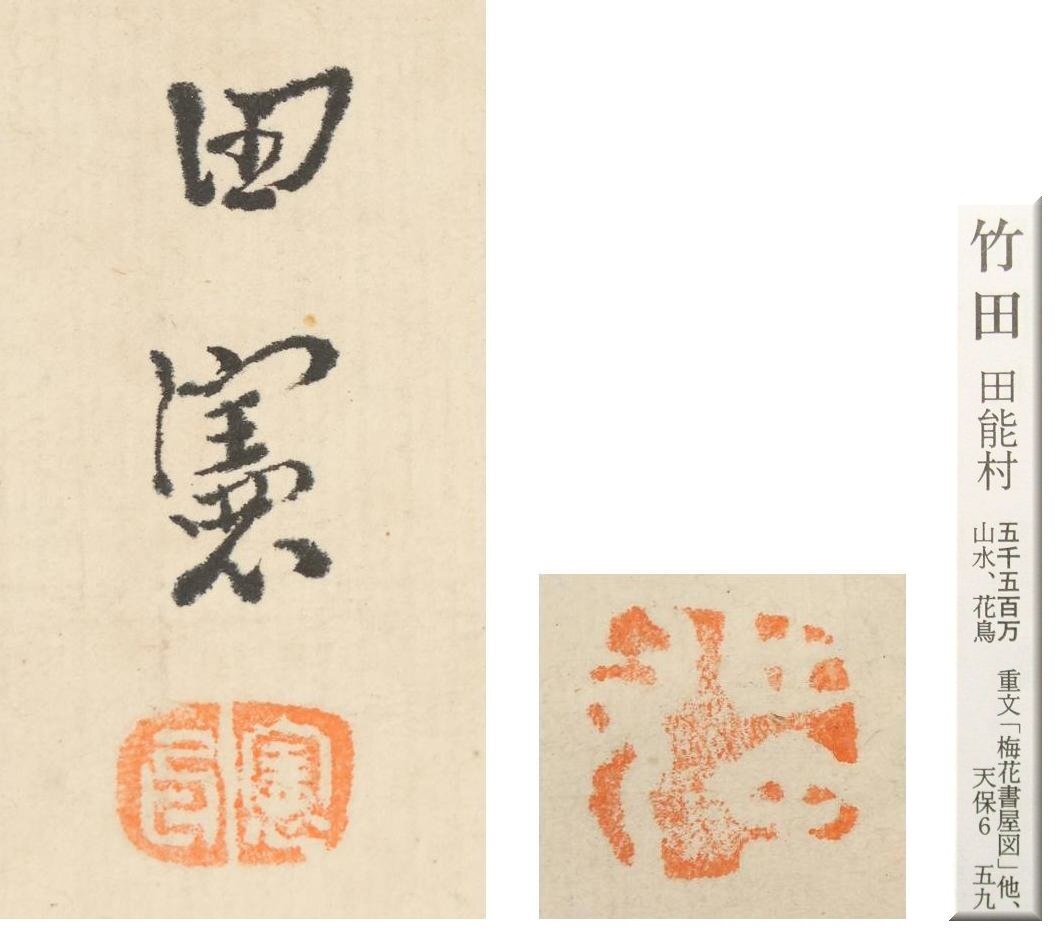 田憲
憲
竹田 田能村
五千五百万 重文「梅花書屋図」他、
山水、花鳥 天保6 五九